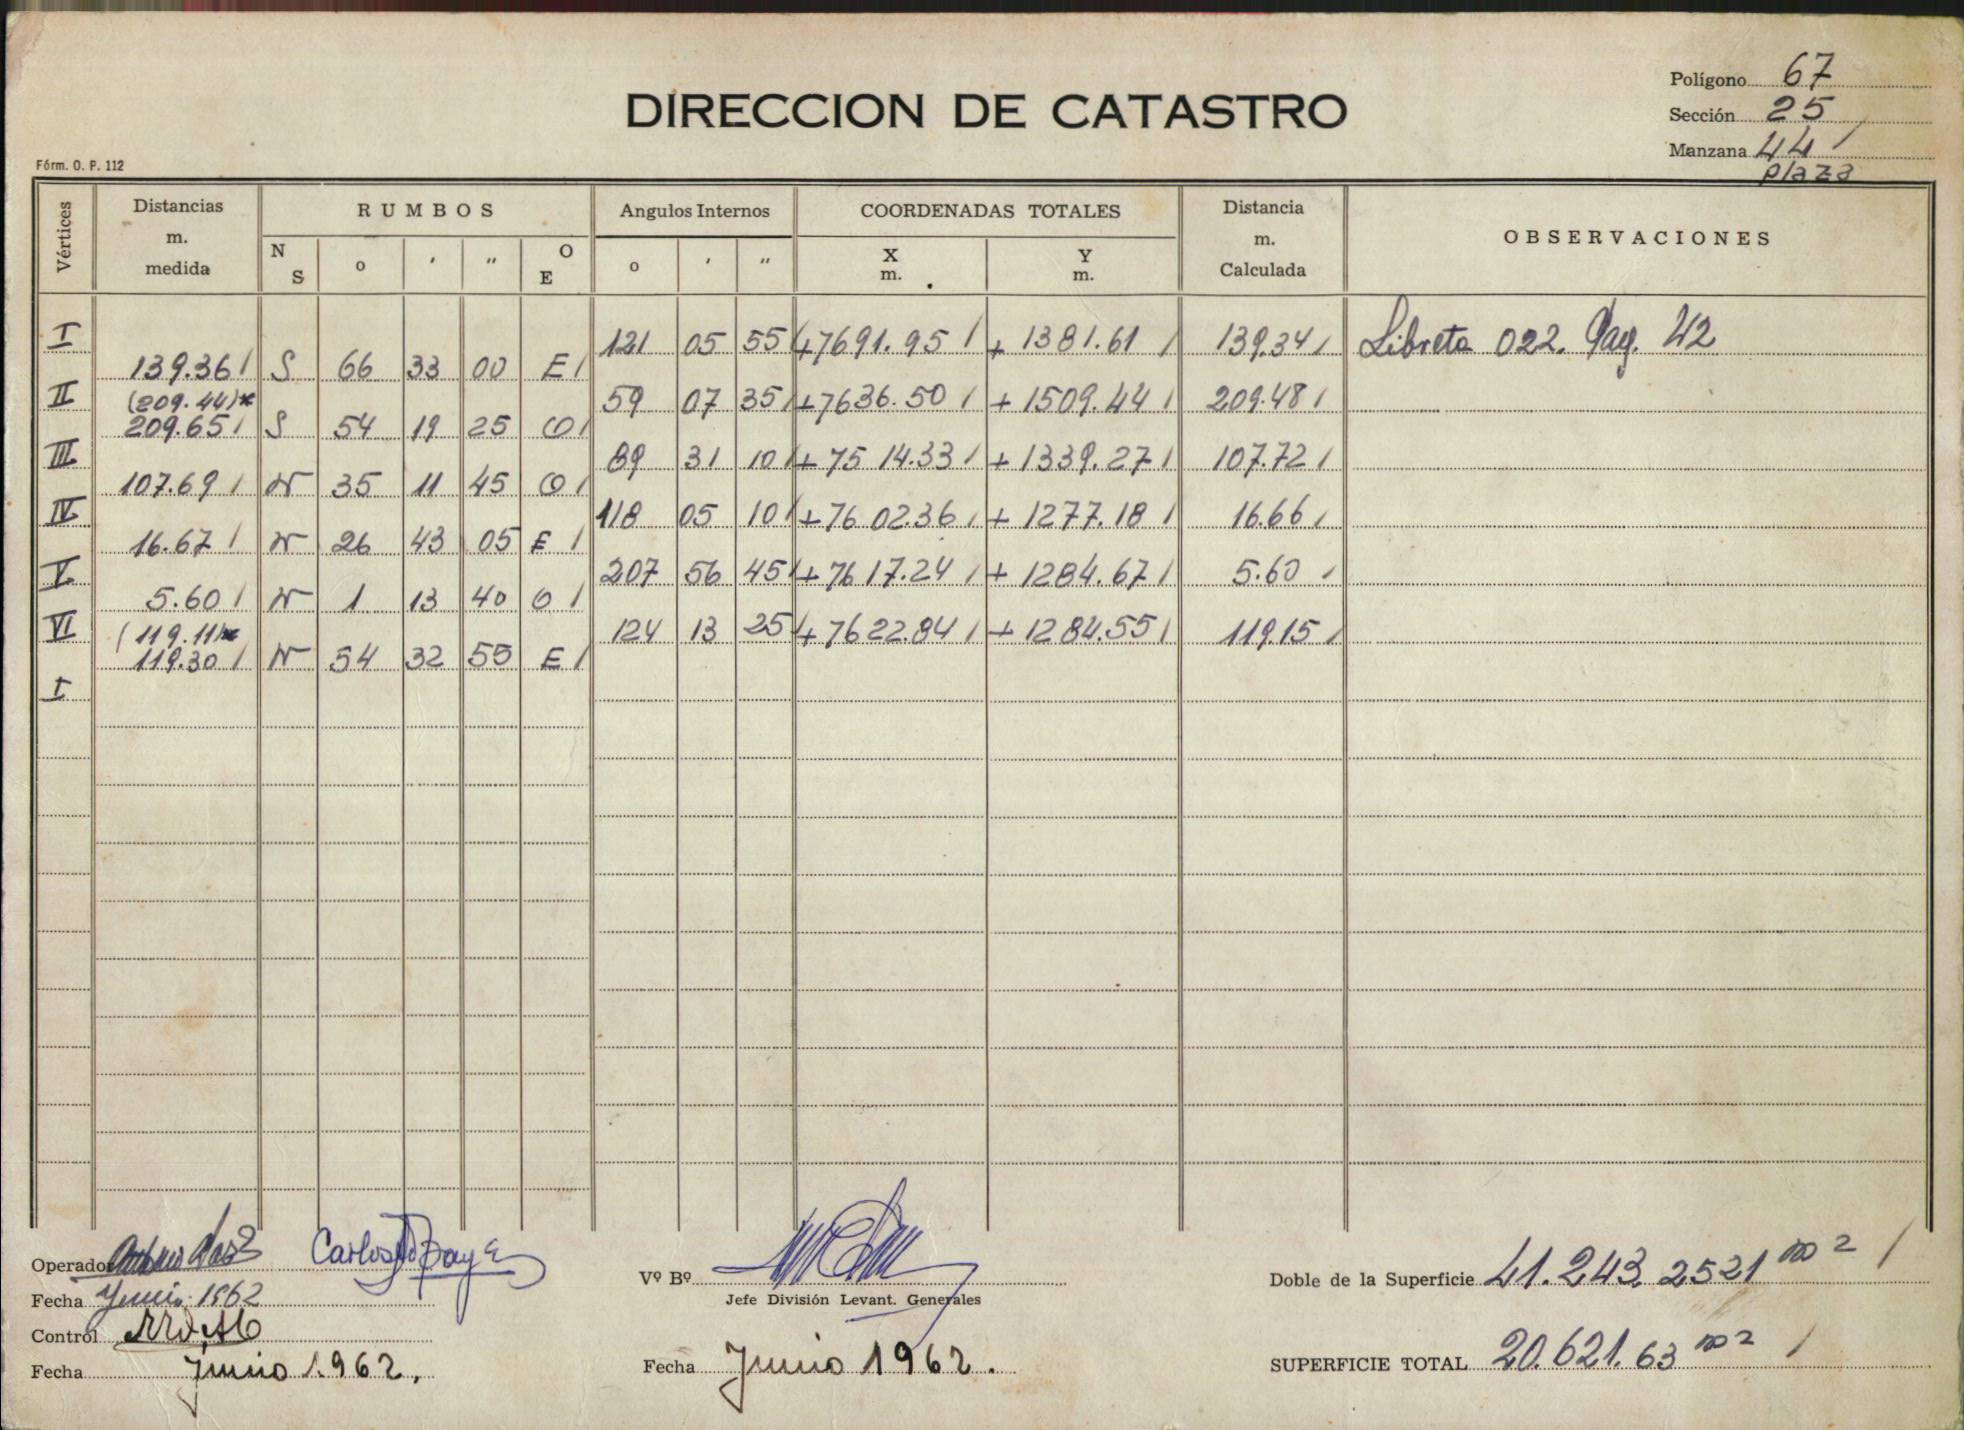 Polígono 67
DIRECCION DE CATASTRO
Sección 25
Manzana 44
plaza
Fórm. O. P. 112
Vértices Distancias m. medida RUMBOS Angulos Internos COORDENADAS TOTALES Distancia m. Calculada OBSERVACIONES
N S o ' " O E o ' " X m. Y m.
I 121 05 55 +7691.95 / + 1381.61 / 139.34 / Libreta 022. Pag. 42
139.36 / S 66 33 00 E /
II (209.44)* 59 07 35 / +7636.50 / + 1509.44 / 209.48 /
209.65 / S 54 19 25 O /
III 89 31 10 / + 7514.33 / + 1339.27 / 107.72 /
107.69 / N 35 11 45 O /
IV 118 05 10 / + 7602.36 / + 1277.18 / 16.66 /
16.67 / N 26 43 05 E /
V 207 56 45 / + 7617.24 / + 1284.67 / 5.60 /
5.60 / N 1 13 40 O /
VI (119.11)* 124 13 25 / + 7622.84 / + 1284.55 / 119.15 /
119.30 / N 54 32 55 E /
I
Operador Carlos
Fecha Junio 1962
Control
Fecha Junio 1962.
Vº Bº
Jefe División Levant. Generales
Fecha Junio 1962.
Doble de la Superficie 41.243.2521 m2 /
SUPERFICIE TOTAL 20.621.63 m2 /